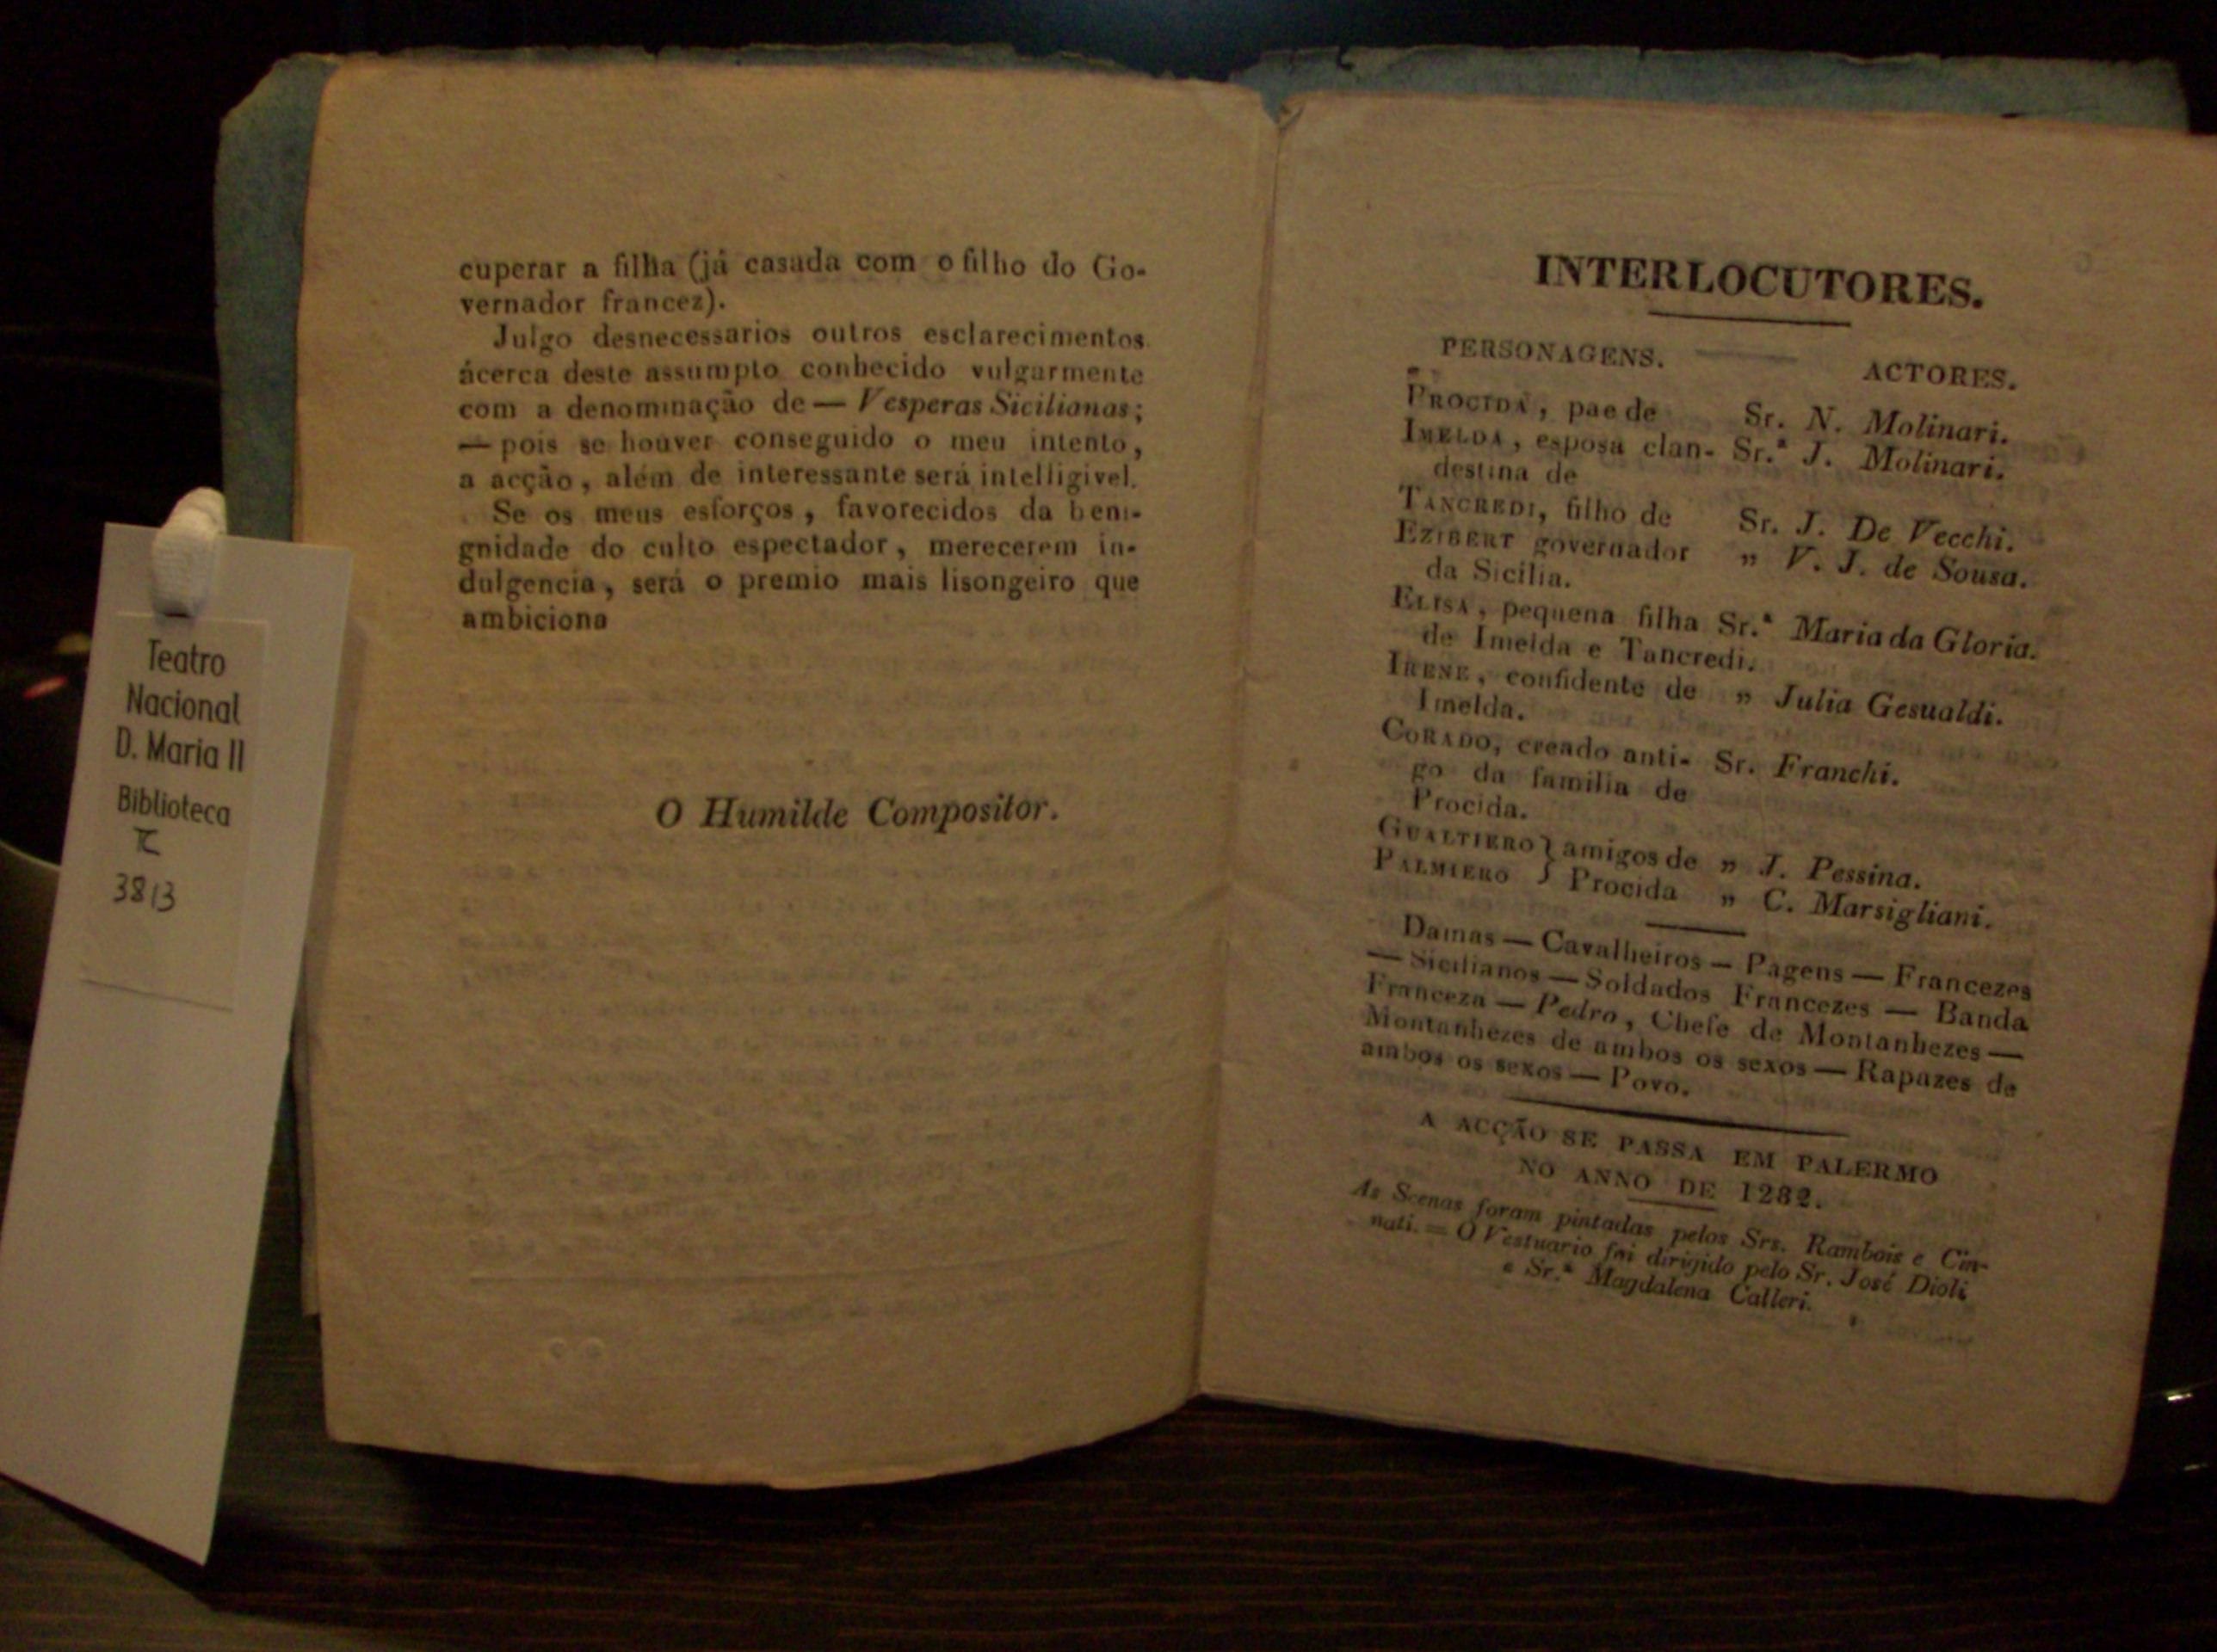 Teatro
Nacional
D. Maria II
Biblioteca
38/3
cuperar a filha (já casada com o filho do Go-
vernador francez).
Julgo desnecessarios outros esclarecimentos
ácerca deste assumpto conhecido vulgarmente
com a denominação de — Vesperas Sicilianas;
— pois se houver conseguido o meu intento,
a acção, além de interessante será intelligivel.
Se os meus esforços, favorecidos da beni-
gnidade do culto espectador, merecerem in-
dulgencia, será o premio mais lisongeiro que
ambiciona
O Humilde Compositor.
INTERLOCUTORES.
PERSONAGENS. ACTORES.
PROCIDA, pae de Sr. N. Molinari.
IMELDA, esposa clan- Sr.ª J. Molinari.
destina de
TANCREDI, filho de Sr. J. De Vecchi.
EZIBERT governador „ V. J. de Sousa.
da Sicilia.
ELISA, pequena filha Sr.ª Maria da Gloria.
de Imelda e Tancredi.
IRENE, confidente de „ Julia Gesualdi.
Imelda.
CORADO, creado anti- Sr. Franchi.
go da familia de
Procida.
GUALTIERO } amigos de „ J. Pessina.
PALMIERO } Procida „ C. Marsigliani.
Damas — Cavalheiros — Pagens — Francezes
— Sicilianos — Soldados Francezes — Banda
Franceza — Pedro, Chefe de Montanhezes —
Montanhezes de ambos os sexos — Rapazes de
ambos os sexos — Povo.
A ACÇÃO SE PASSA EM PALERMO
NO ANNO DE 1282.
As Scenas foram pintadas pelos Srs. Rambois e Cin-
nati. = O Vestuario foi dirigido pelo Sr. José Dioli
e Sr.ª Magdalena Calleri.